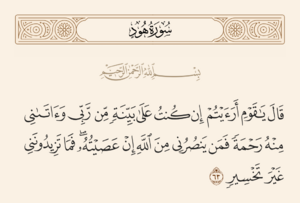 سُورَةُ هُودٍ
بِسْمِ اللَّهِ الرَّحْمَٰنِ الرَّحِيمِ
قَالَ يَٰقَوْمِ أَرَءَيْتُمْ إِن كُنتُ عَلَىٰ بَيِّنَةٍ مِّن رَّبِّي وَءَاتَىٰنِي
مِنْهُ رَحْمَةً فَمَن يَنصُرُنِي مِنَ اللَّهِ إِنْ عَصَيْتُهُۥۖ فَمَا تَزِيدُونَنِي
غَيْرَ تَخْسِيرٍ ٦٣